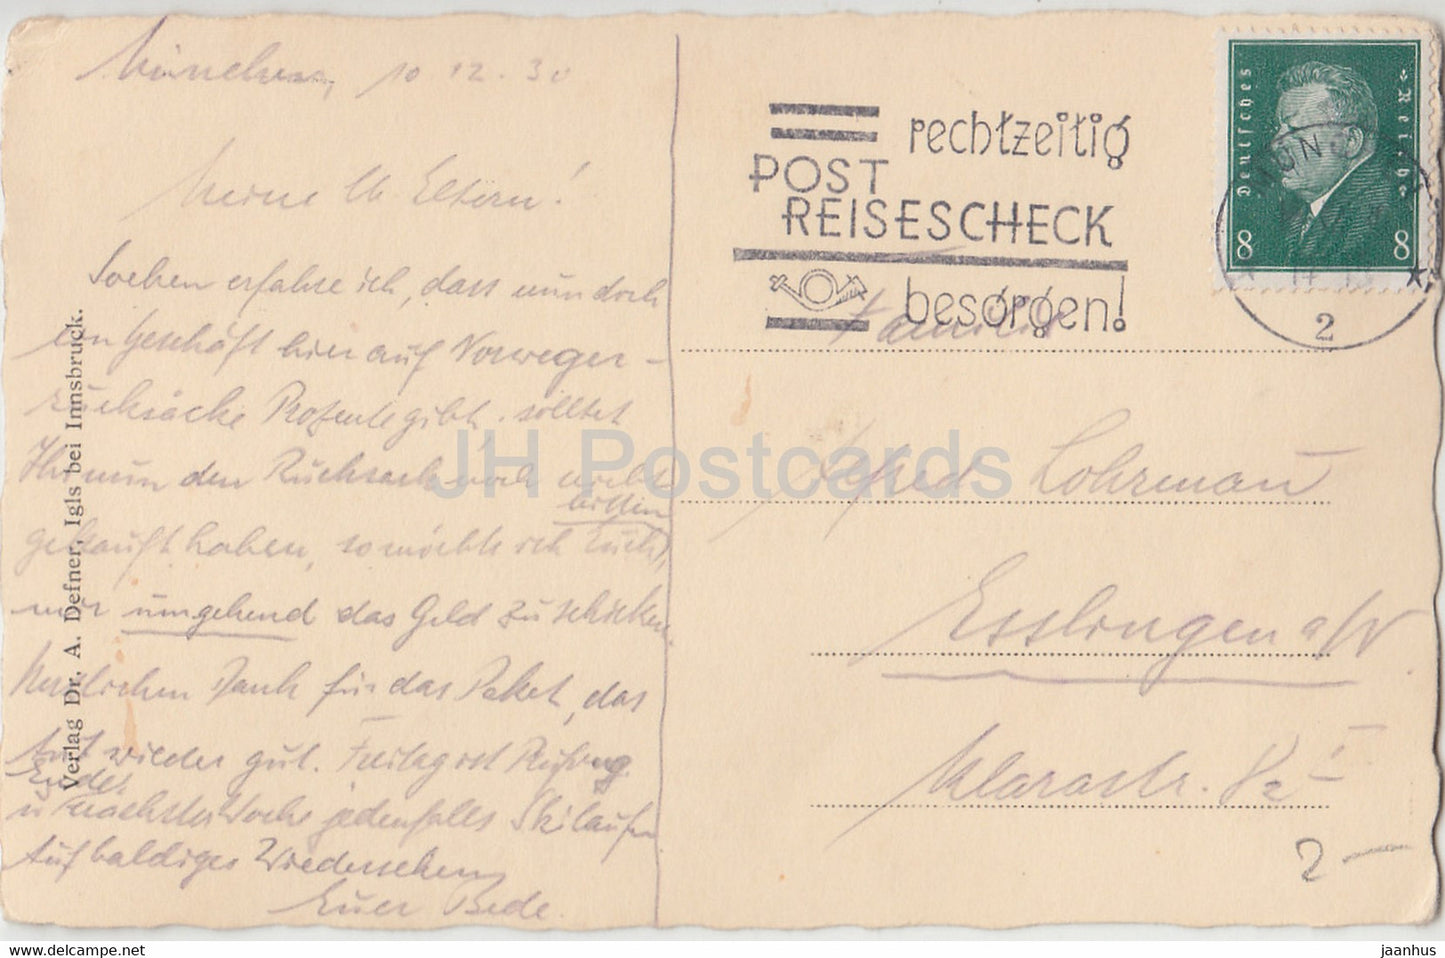 München, 10.12.30
Meine lb. Eltern!
Soeben erfahre ich, dass nun doch
ein Geschäft hier auf Norweger-
rucksäcke Prozente gibt. Solltet
Ihr nun den Rucksack noch nicht
gekauft haben, so möchte ich Euch bitten,
mir umgehend das Geld zu schicken.
Herzlichen Dank für das Paket, das
war wieder gut. Freitag ist Prüfung
u. Ende nächster Woche jedenfalls Skilaufen
Auf baldiges Wiedersehen
Euer Bede.
Verlag Dr. A. Defner, Igls bei Innsbruck.
rechtzeitig
POST
REISESCHECK
besorgen!
Deutsches Reich
8 8
MÜN
2
Familie
Alfred Lohrmann
Esslingen a/N
Klarastr. I
2-
JH Postcards
www.delcampe.net
jaanhus